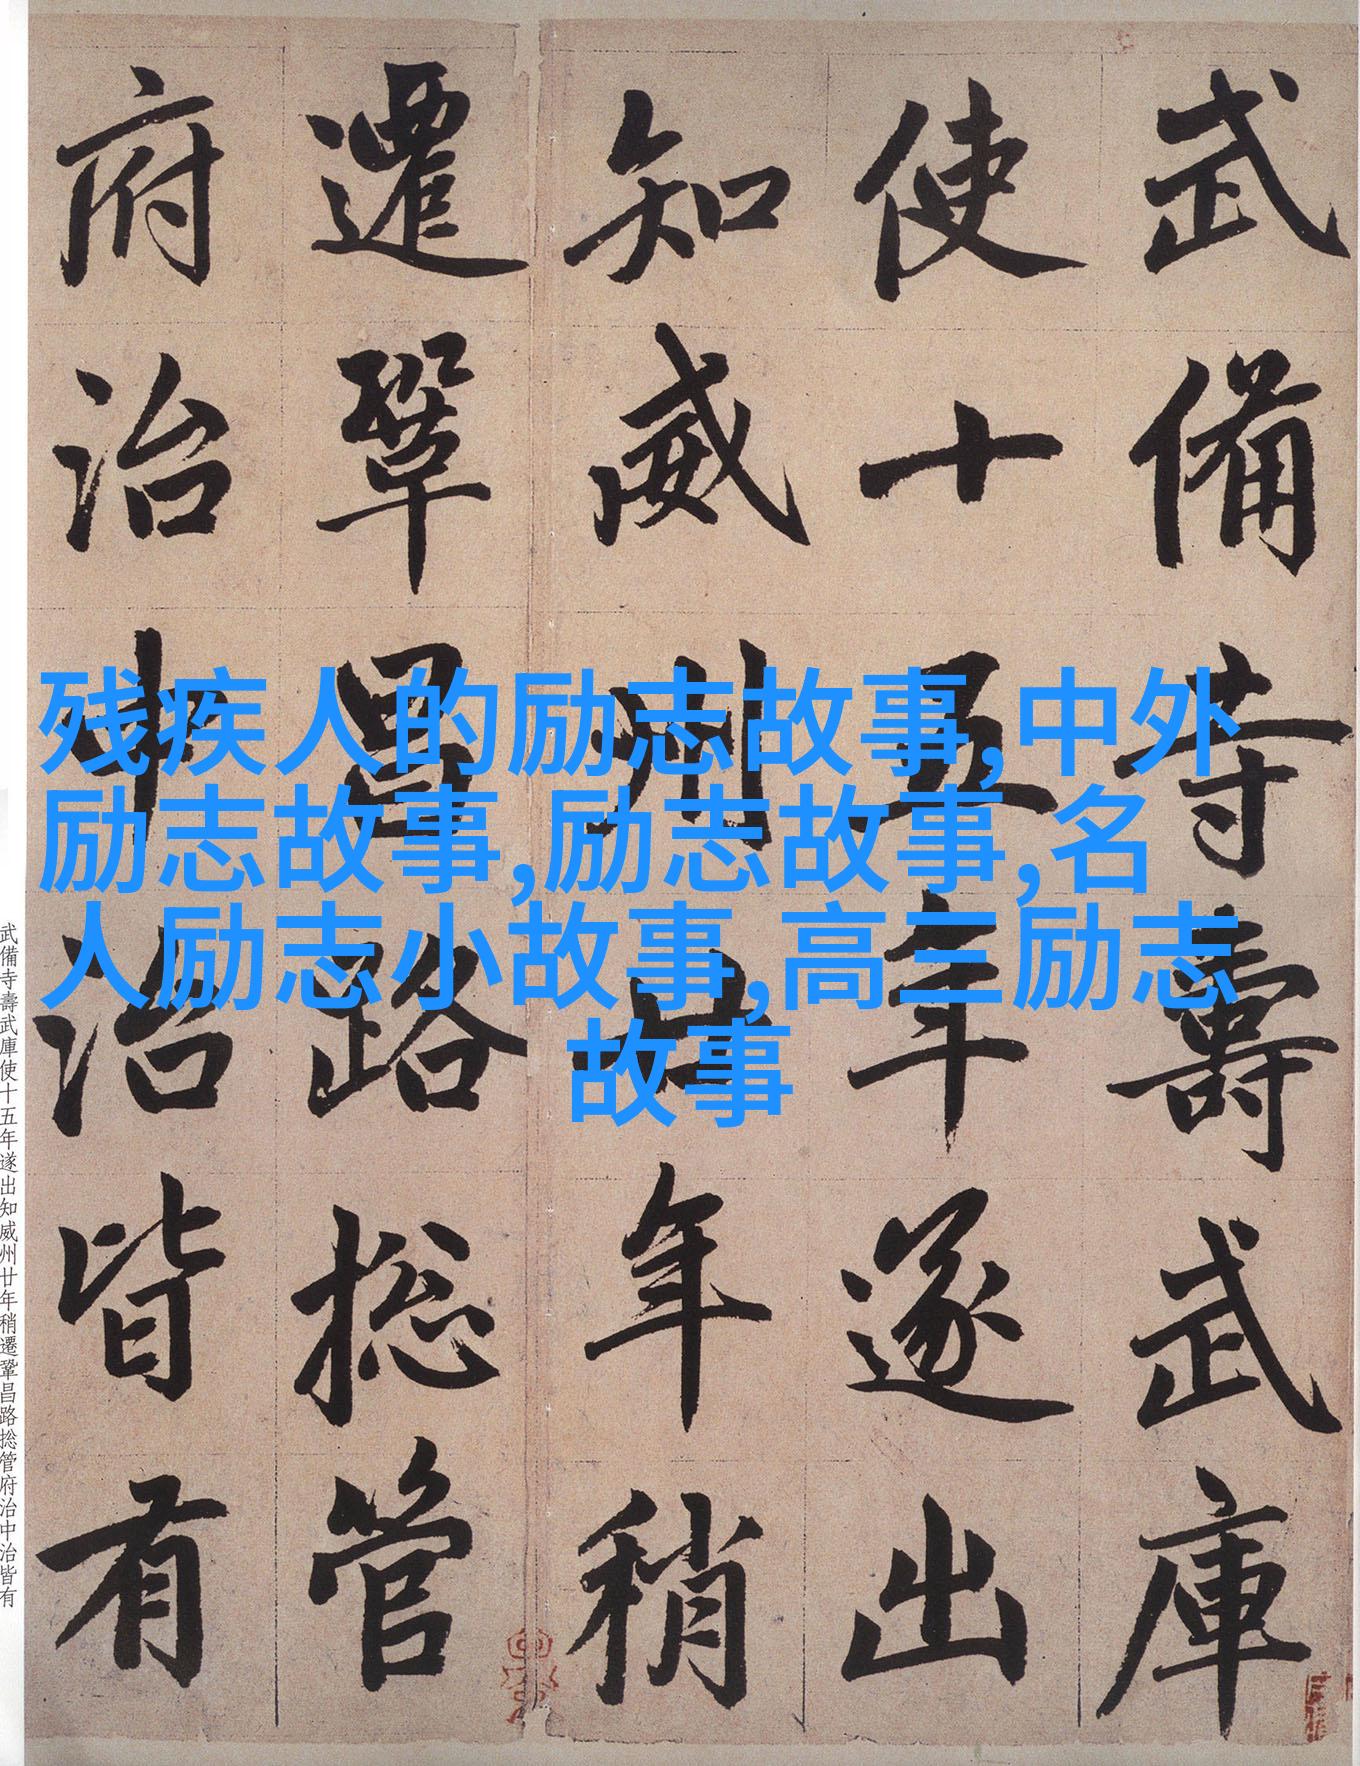 武備寺壽武庫
使十五年遂出
知威州廿年稍
遷鞏昌路揔管
府治中治皆有
残疾人的励志故事,中外
励志故事,励志故事,名
人励志小故事,高三励志
故事
武備寺壽武庫使十五年遂出知威州廿年稍遷鞏昌路揔管府治中治皆有